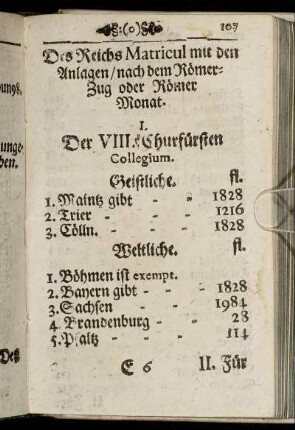 :(o): 107
Des Reichs Matricul mit den
Anlagen/nach dem Römer-
Zug oder Römer
Monat.
I.
Der VIII. Churfürsten
Collegium.
Geistliche. fl.
1. Maintz gibt - - 1828
2. Trier - - 1216
3. Cölln. - - 1828
Weltliche. fl.
1. Böhmen ist exempt.
2. Bayern gibt - - 1828
3. Sachsen - - 1984
4 Brandenburg - - 28
5. Pfaltz - - 114
E 6 II. Für